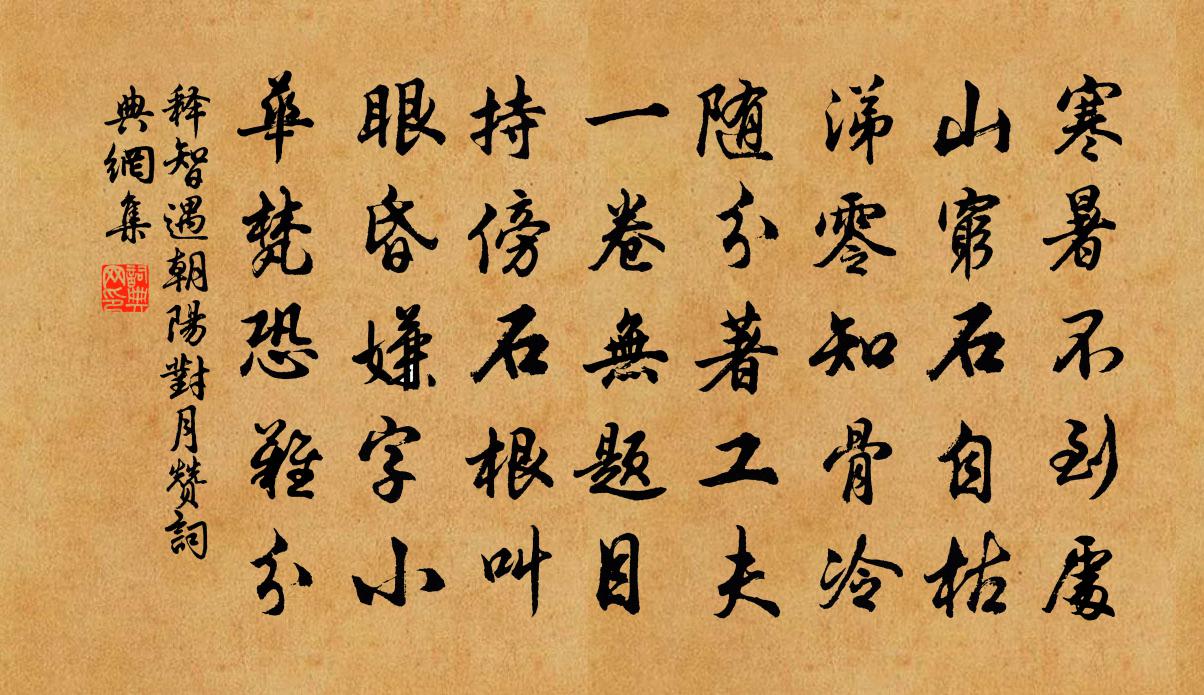 寒暑不到處
山窮石自枯
涕零知骨冷
随分著工夫
一卷無題目
持傍石根叫
眼昏嫌字小
華梵恐難分
释智遇朝陽對月赞詞
典網集
詞典網印